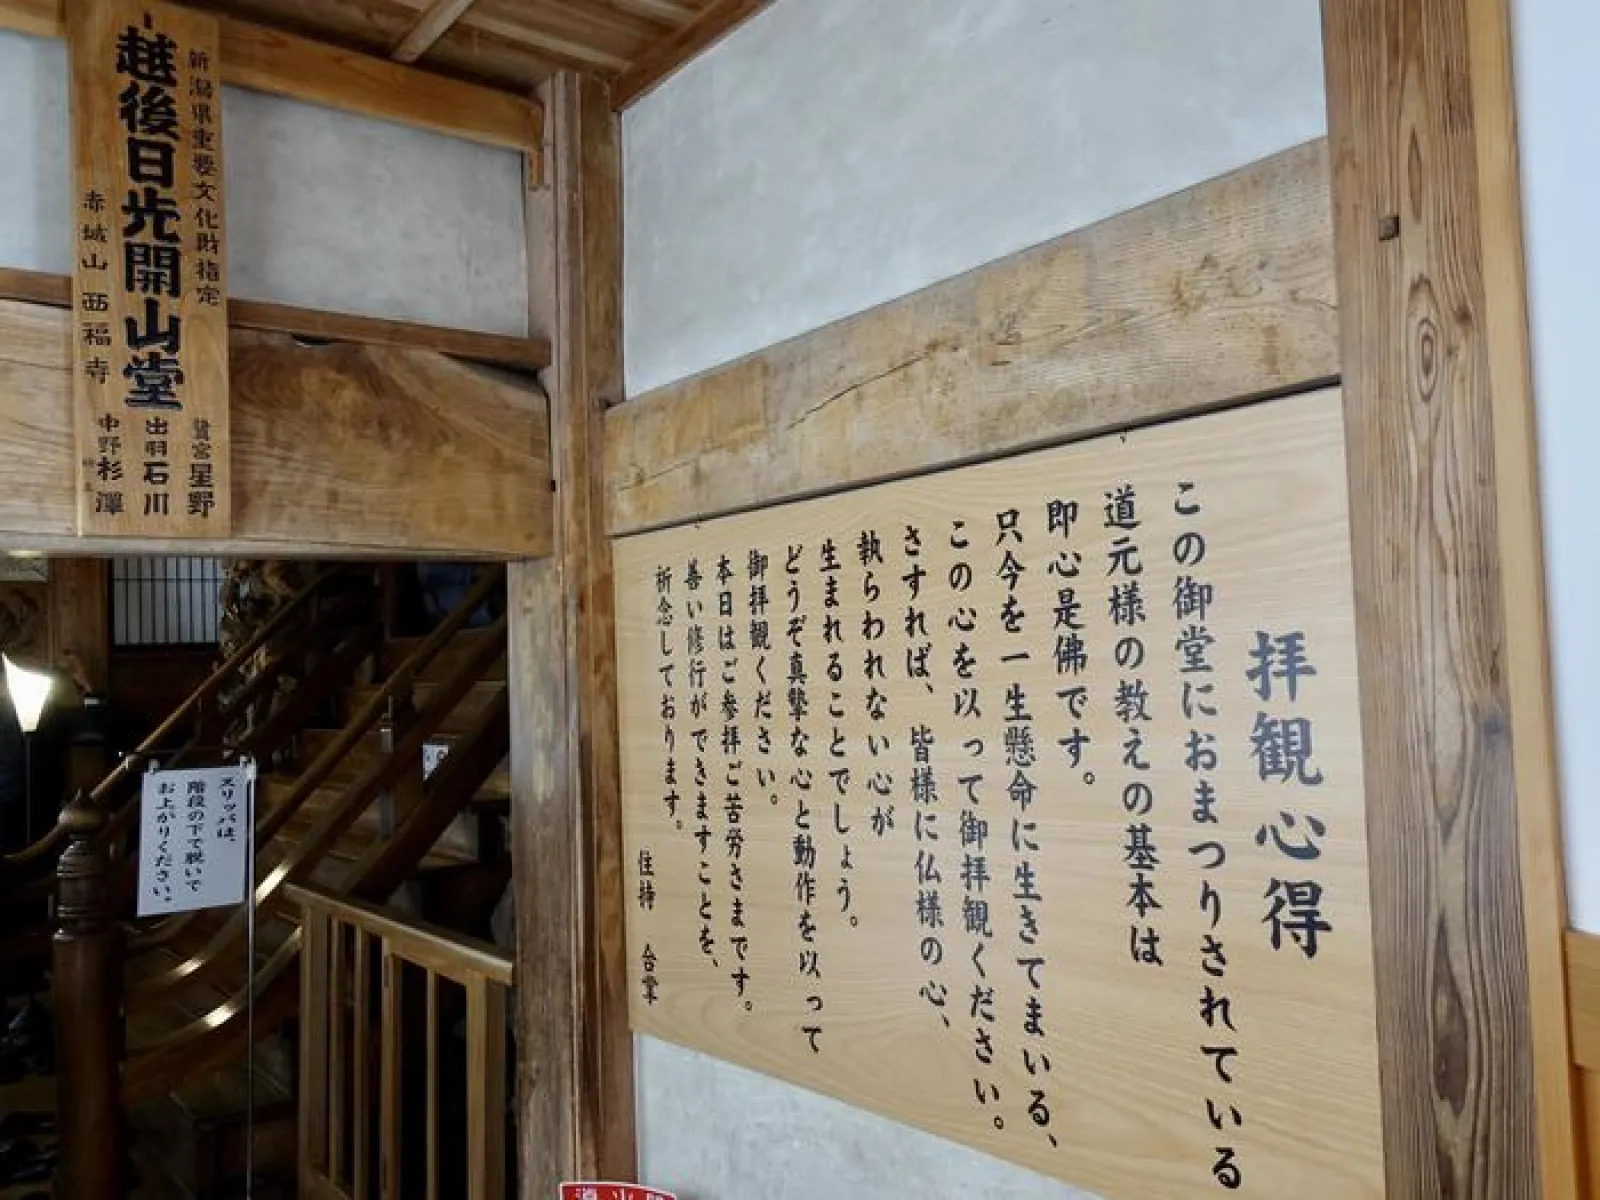 新潟県重要文化財指定
越後日光開山堂
赤城山 西福寺
鷲宮 星野
出羽 石川
中野 杉澤
拝観心得
この御堂におまつりされている
道元様の教えの基本は
即心是佛です。
只今を一生懸命に生きてまいる、
この心を以って御拝観ください。
さすれば、皆様に仏様の心、
執らわれない心が
生まれることでしょう。
どうぞ真摯な心と動作を以って
御拝観ください。
本日はご参拝ご苦労さまです。
善い修行ができますことを、
祈念しております。
住持 合掌
スリッパは、
階段の下で脱いで
お上がりください。